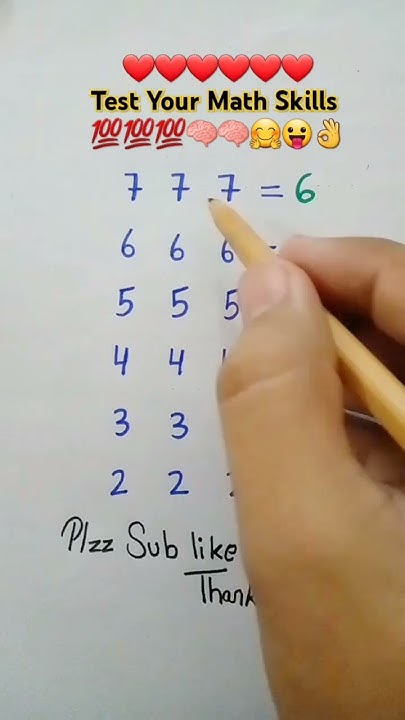 ❤️❤️❤️❤️❤️❤️
Test Your Math Skills
💯💯💯🧠🧠🤗😛👌
7 7 7 = 6
6 6 6
5 5 5
4 4
3 3
2 2
Plzz Sub like